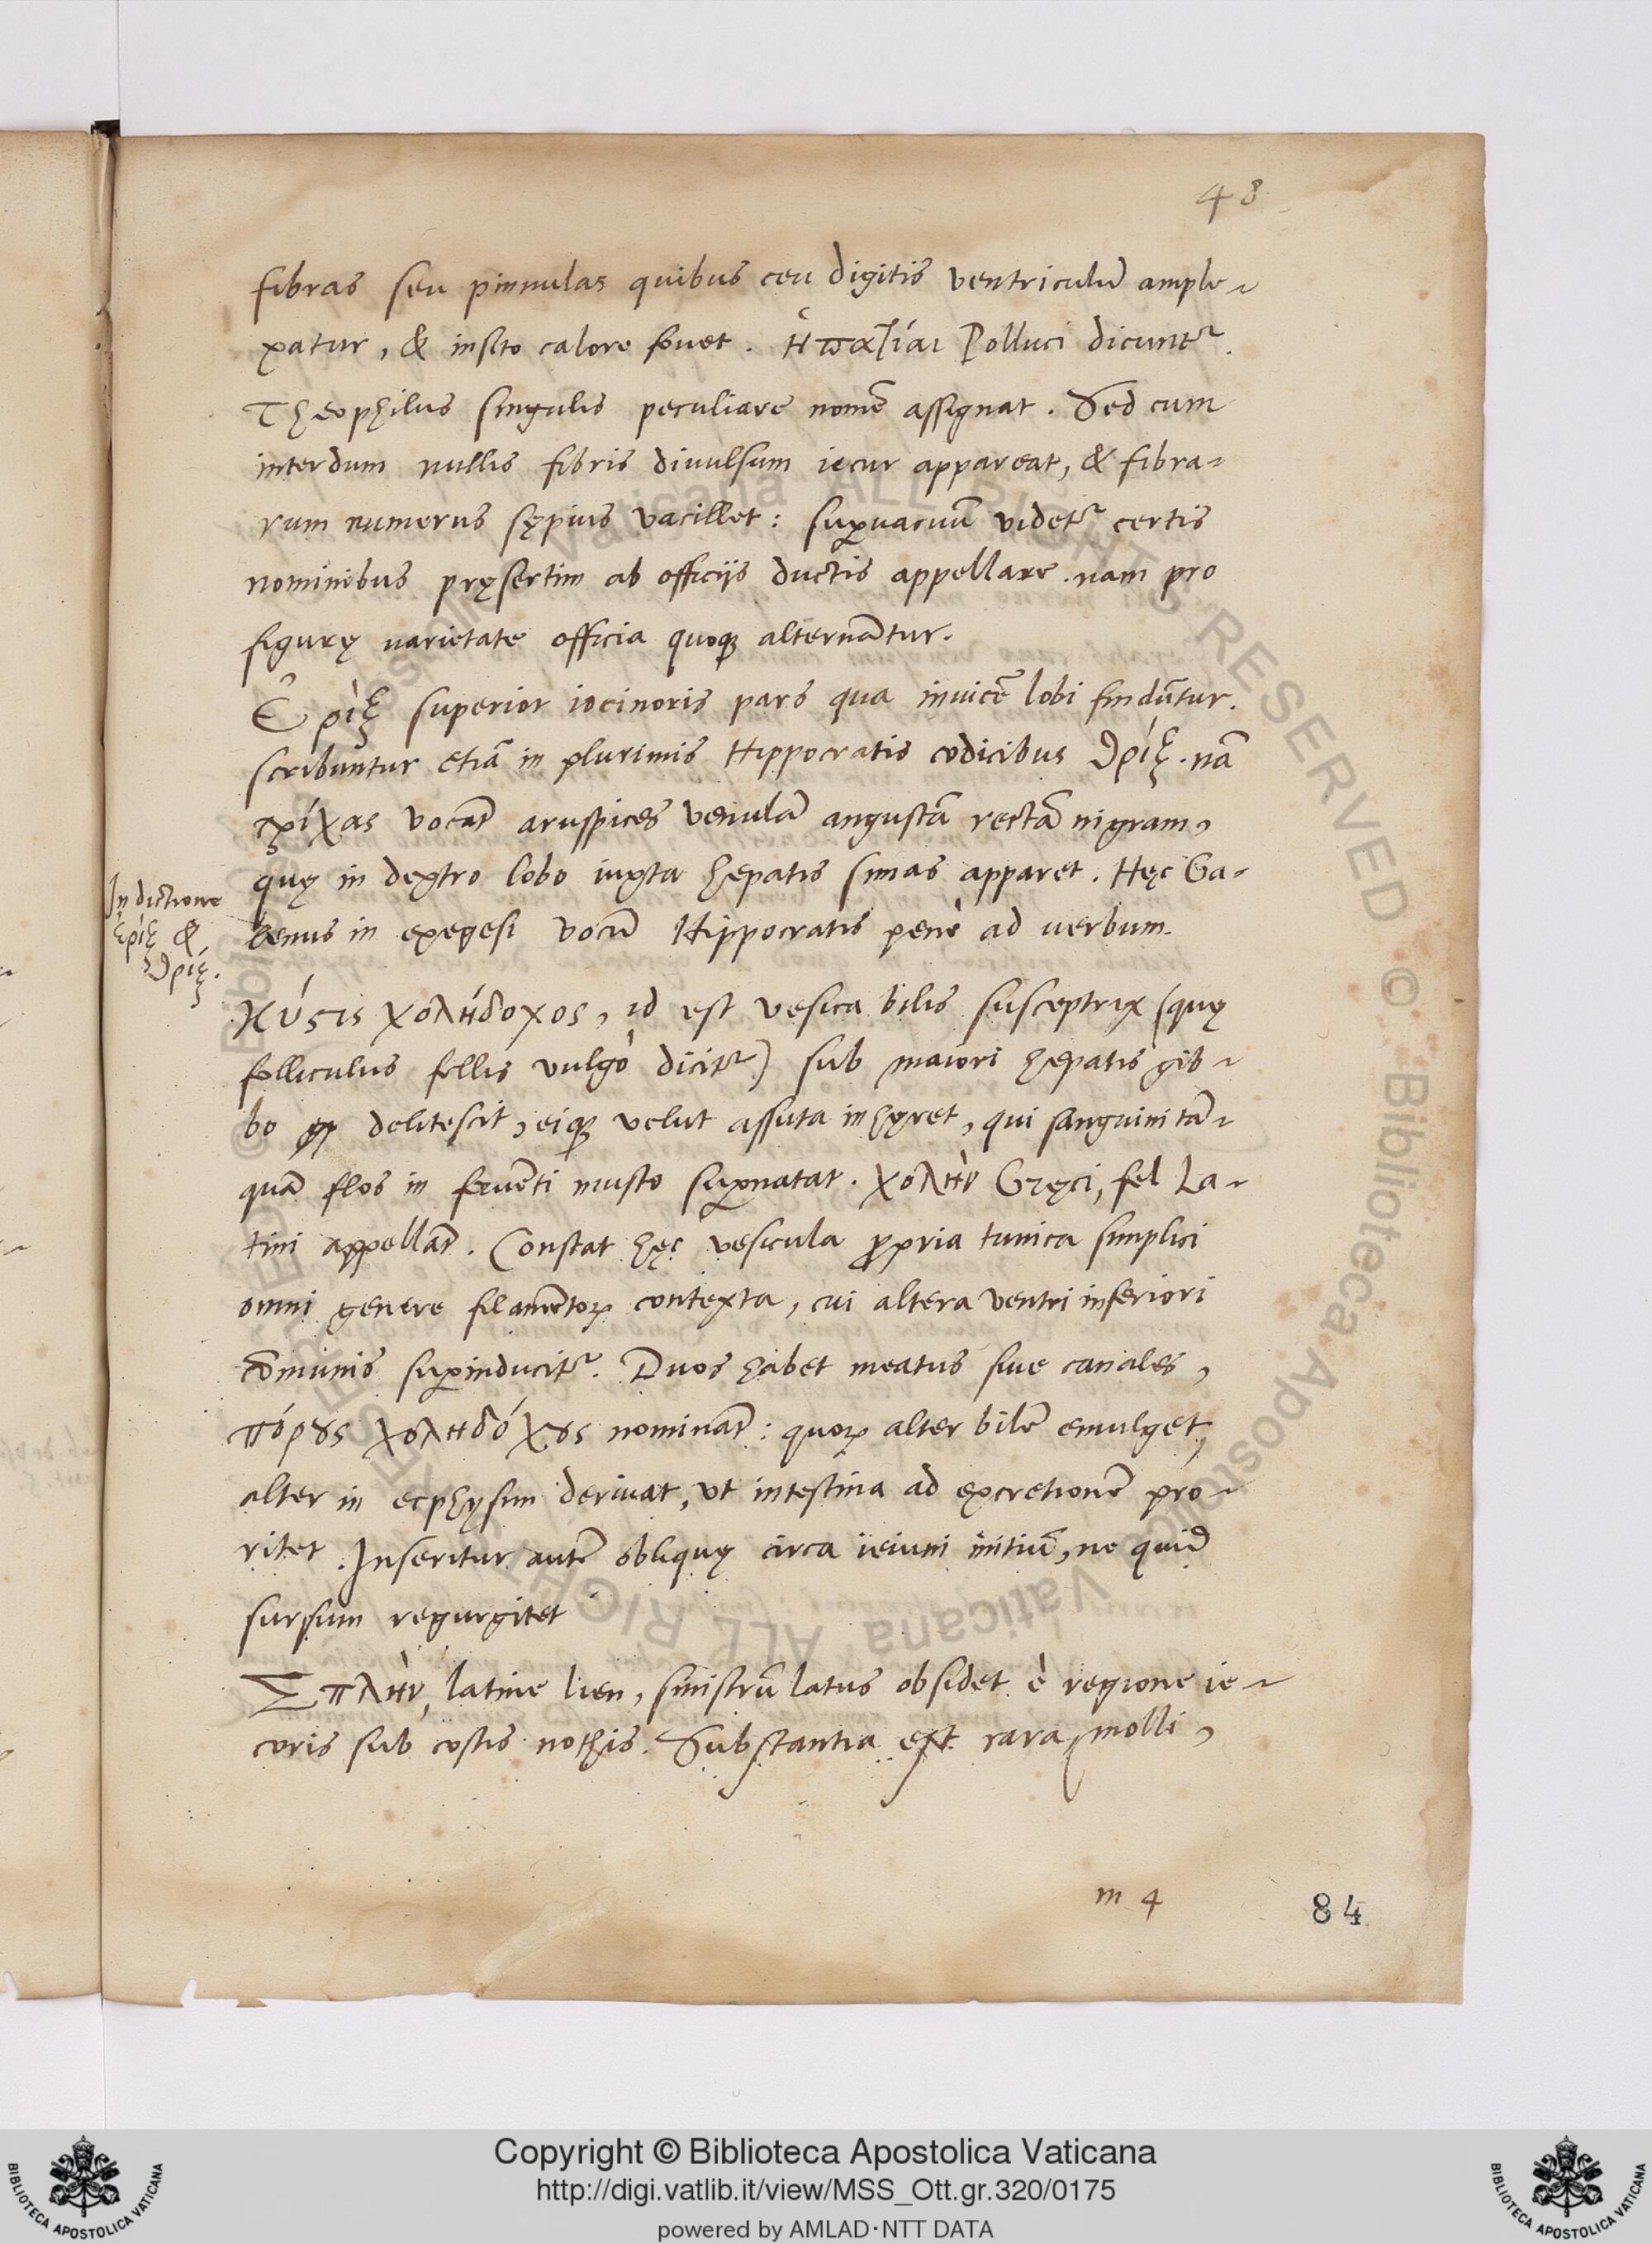 48
fibras seu pinnulas quibus ceu digitis ventriculũ ample-
xatur, & insito calore fouet. ἡπατίαι Polluci dicunt᷑.
Theophilus singulis peculiare nomẽ assignat. Sed cum
interdum nullis fibris diuulsum iecur appareat, & fibra-
rum numerus sępius vacillet: suꝑuacuũ videt᷑ certis
nominibus pręsertim ab officijs ductis appellare. nam pro
figurę varietate officia quoqꝫ alternãtur.
Θρὶξ superior iocinoris pars qua inuicẽ lobi findũtur.
scribuntur etiã in plurimis Hippocratis codicibus θρίξ. nã
τρίχας vocãt aruspices venulã angustã rectã nigram,
quę in dextro lobo iuxta hepatis simas apparet. Hęc Ga-
In dictione
lenus in exegesi vocũ Hippocratis penè ad verbum.
&
θρίξ.
Κύστις χοληδοχος, id est vesica bilis susceptrix (quę
folliculus fellis vulgò dicit᷑) sub maiori hepatis gib-
bo delitescit, eiqꝫ velut assuta inhęret, qui sanguini tã-
quã flos in feruẽti musto suꝑnatat. χολὴν Gręci, fel La-
tini appellãt. Constat hęc vesicula ꝓpria tunica simplici
omni genere filamẽtoꝝ contexta, cui altera ventri inferiori
cõmunis suꝑinducit᷑. Duos habet meatus siue canales,
πόρȣς χοληδόχȣς nominãt: quoꝝ alter bilẽ emulget,
alter in ecphysim deriuat, vt intestina ad excretionẽ pro-
ritet. Inseritur autẽ obliquę circa ieiuni initiũ, ne quid
sursum regurgitet
Σπλὴν, latine lien, sinistrũ latus obsidet è regione ie-
coris sub costis nothis. Substantia est rara, molli,
m 4
84
Copyright © Biblioteca Apostolica Vaticana
http://digi.vatlib.it/view/MSS_Ott.gr.320/0175
powered by AMLAD·NTT DATA
BIBLIOTECA APOSTOLICA VATICANA
BIBLIOTECA APOSTOLICA VATICANA